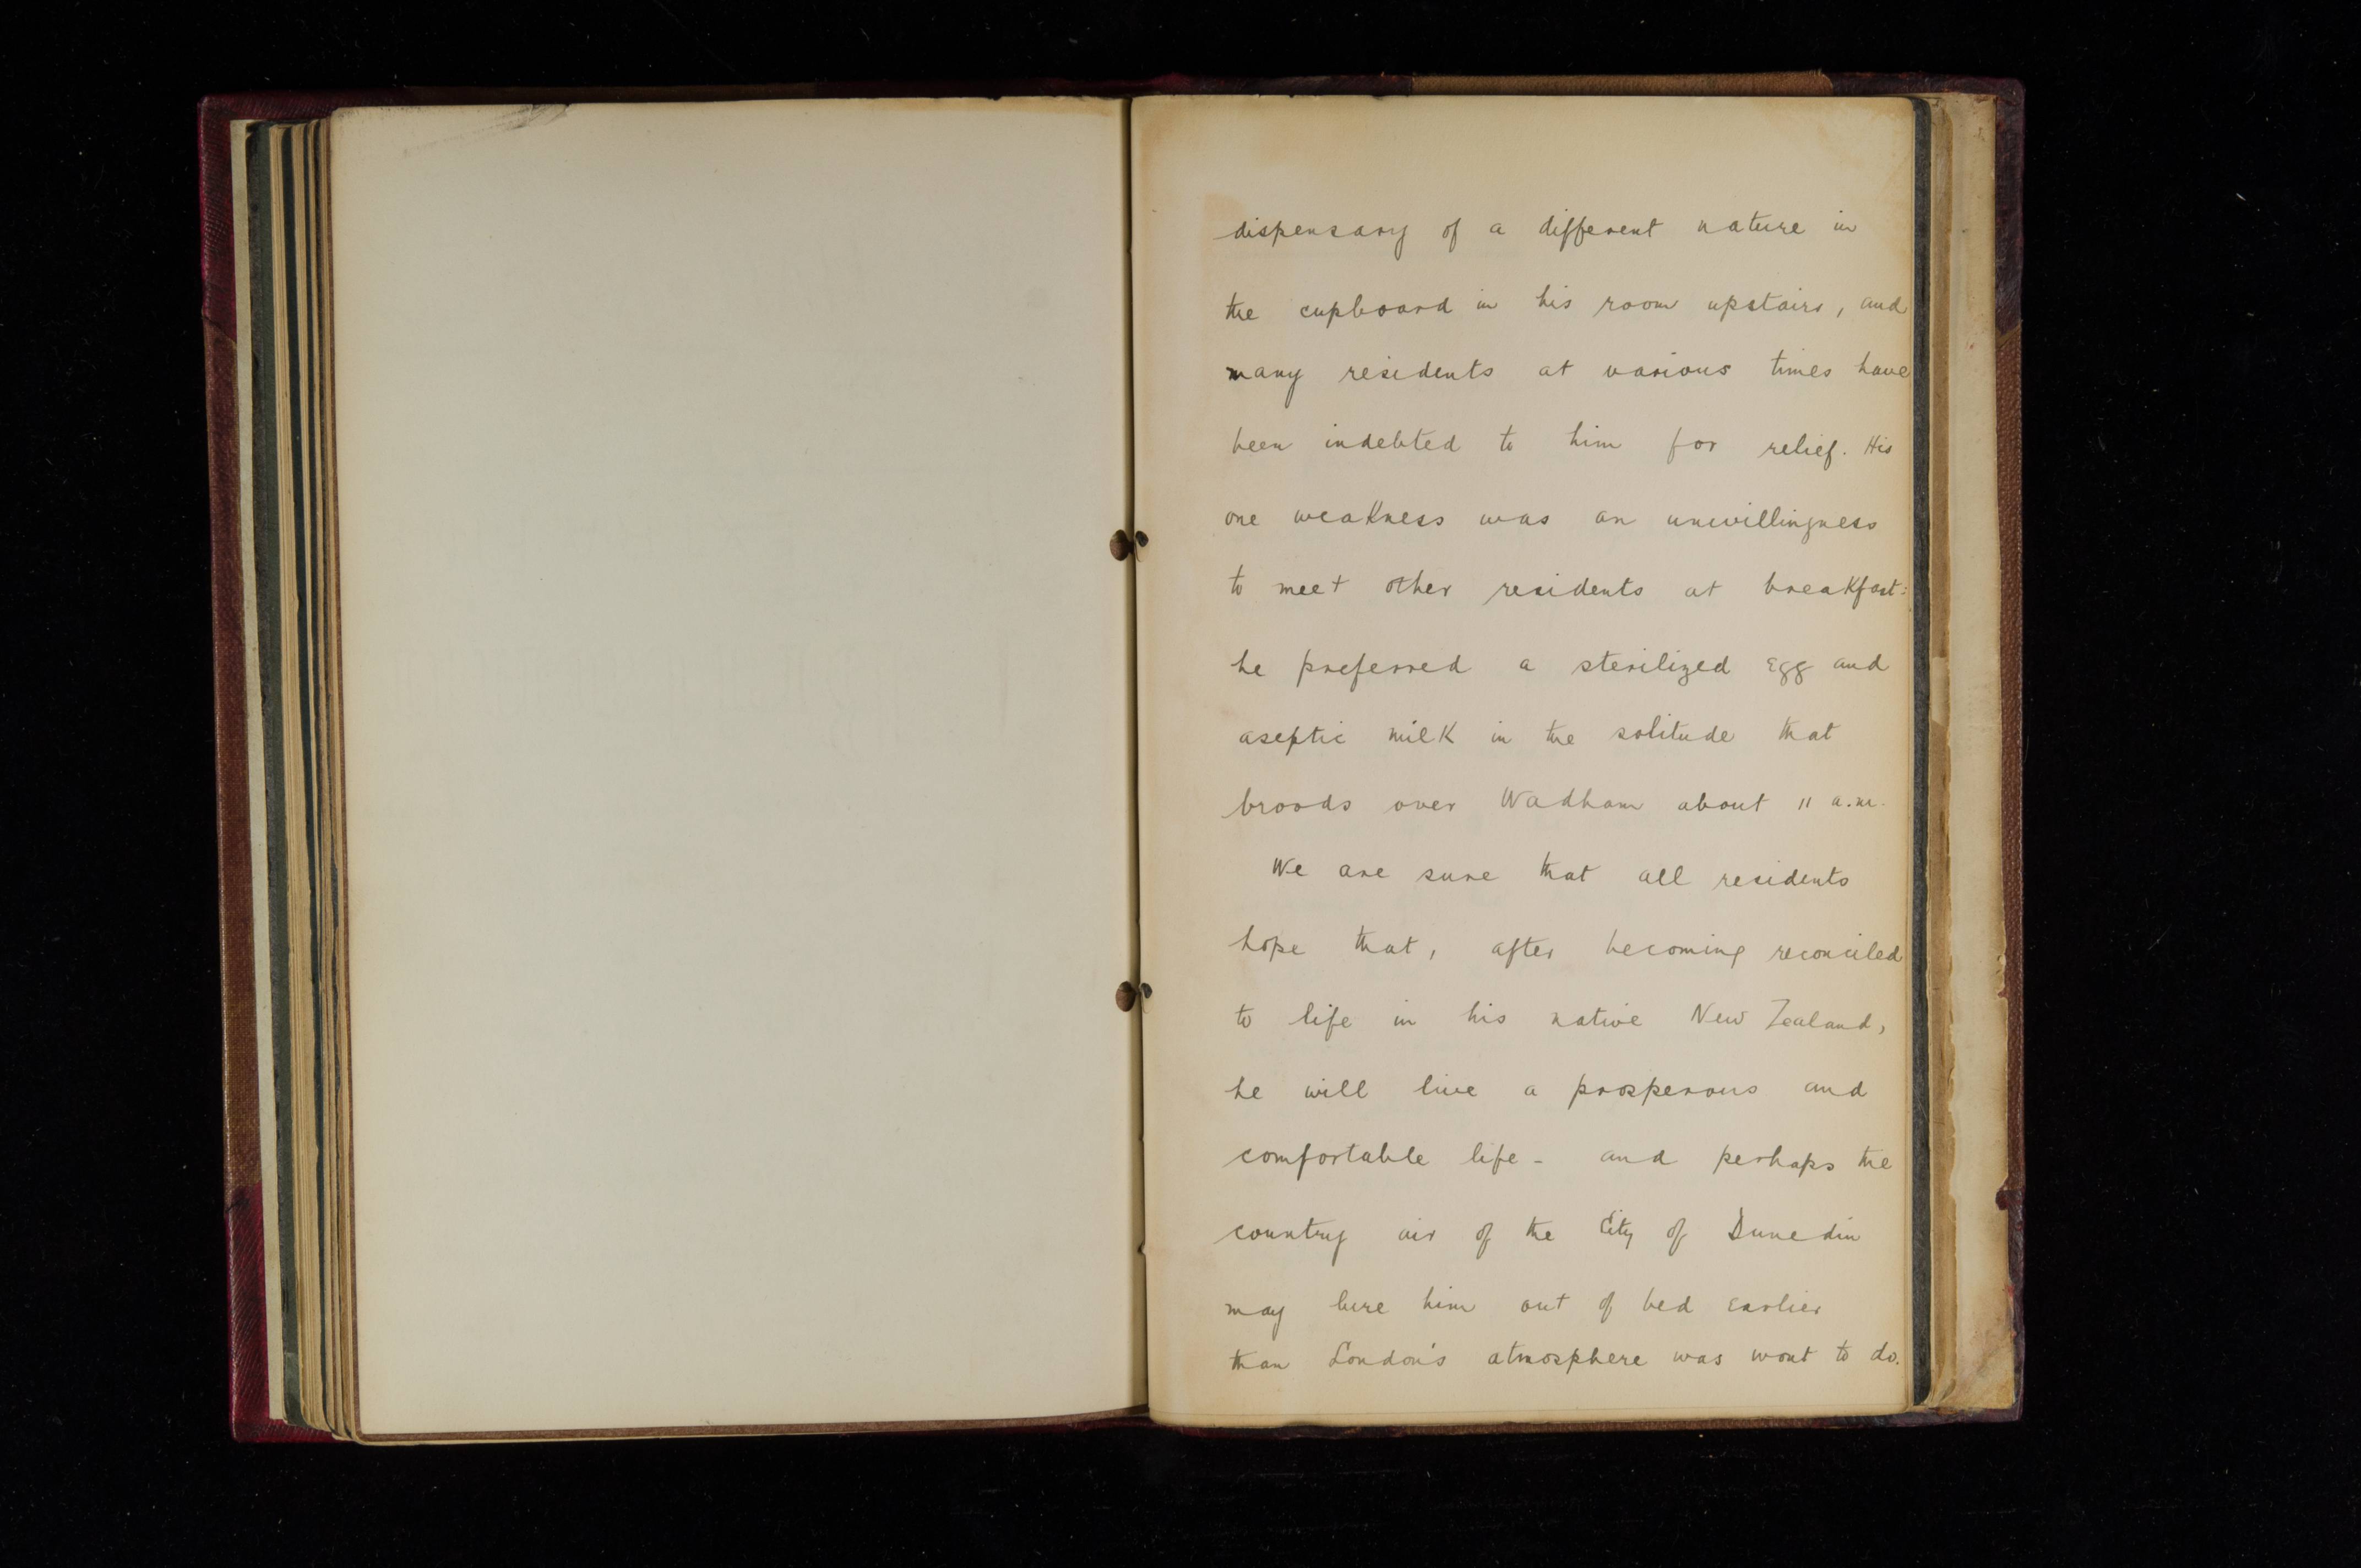 dispensary of a different nature in
the cupboard in his room upstairs, and
many residents at various times have
been indebted to him for relief. His
one weakness was an unwillingness
to meet other residents at breakfast:
he preferred a sterilized egg and
aseptic milk in the solitude that
broods over Wadham about 11 a.m.
We are sure that all residents
hope that, after becoming reconciled
to life in his native New Zealand,
he will live a prosperous and
comfortable life - and perhaps the
country air of the City of Dunedin
may lure him out of bed earlier
than London's atmosphere was wont to do.